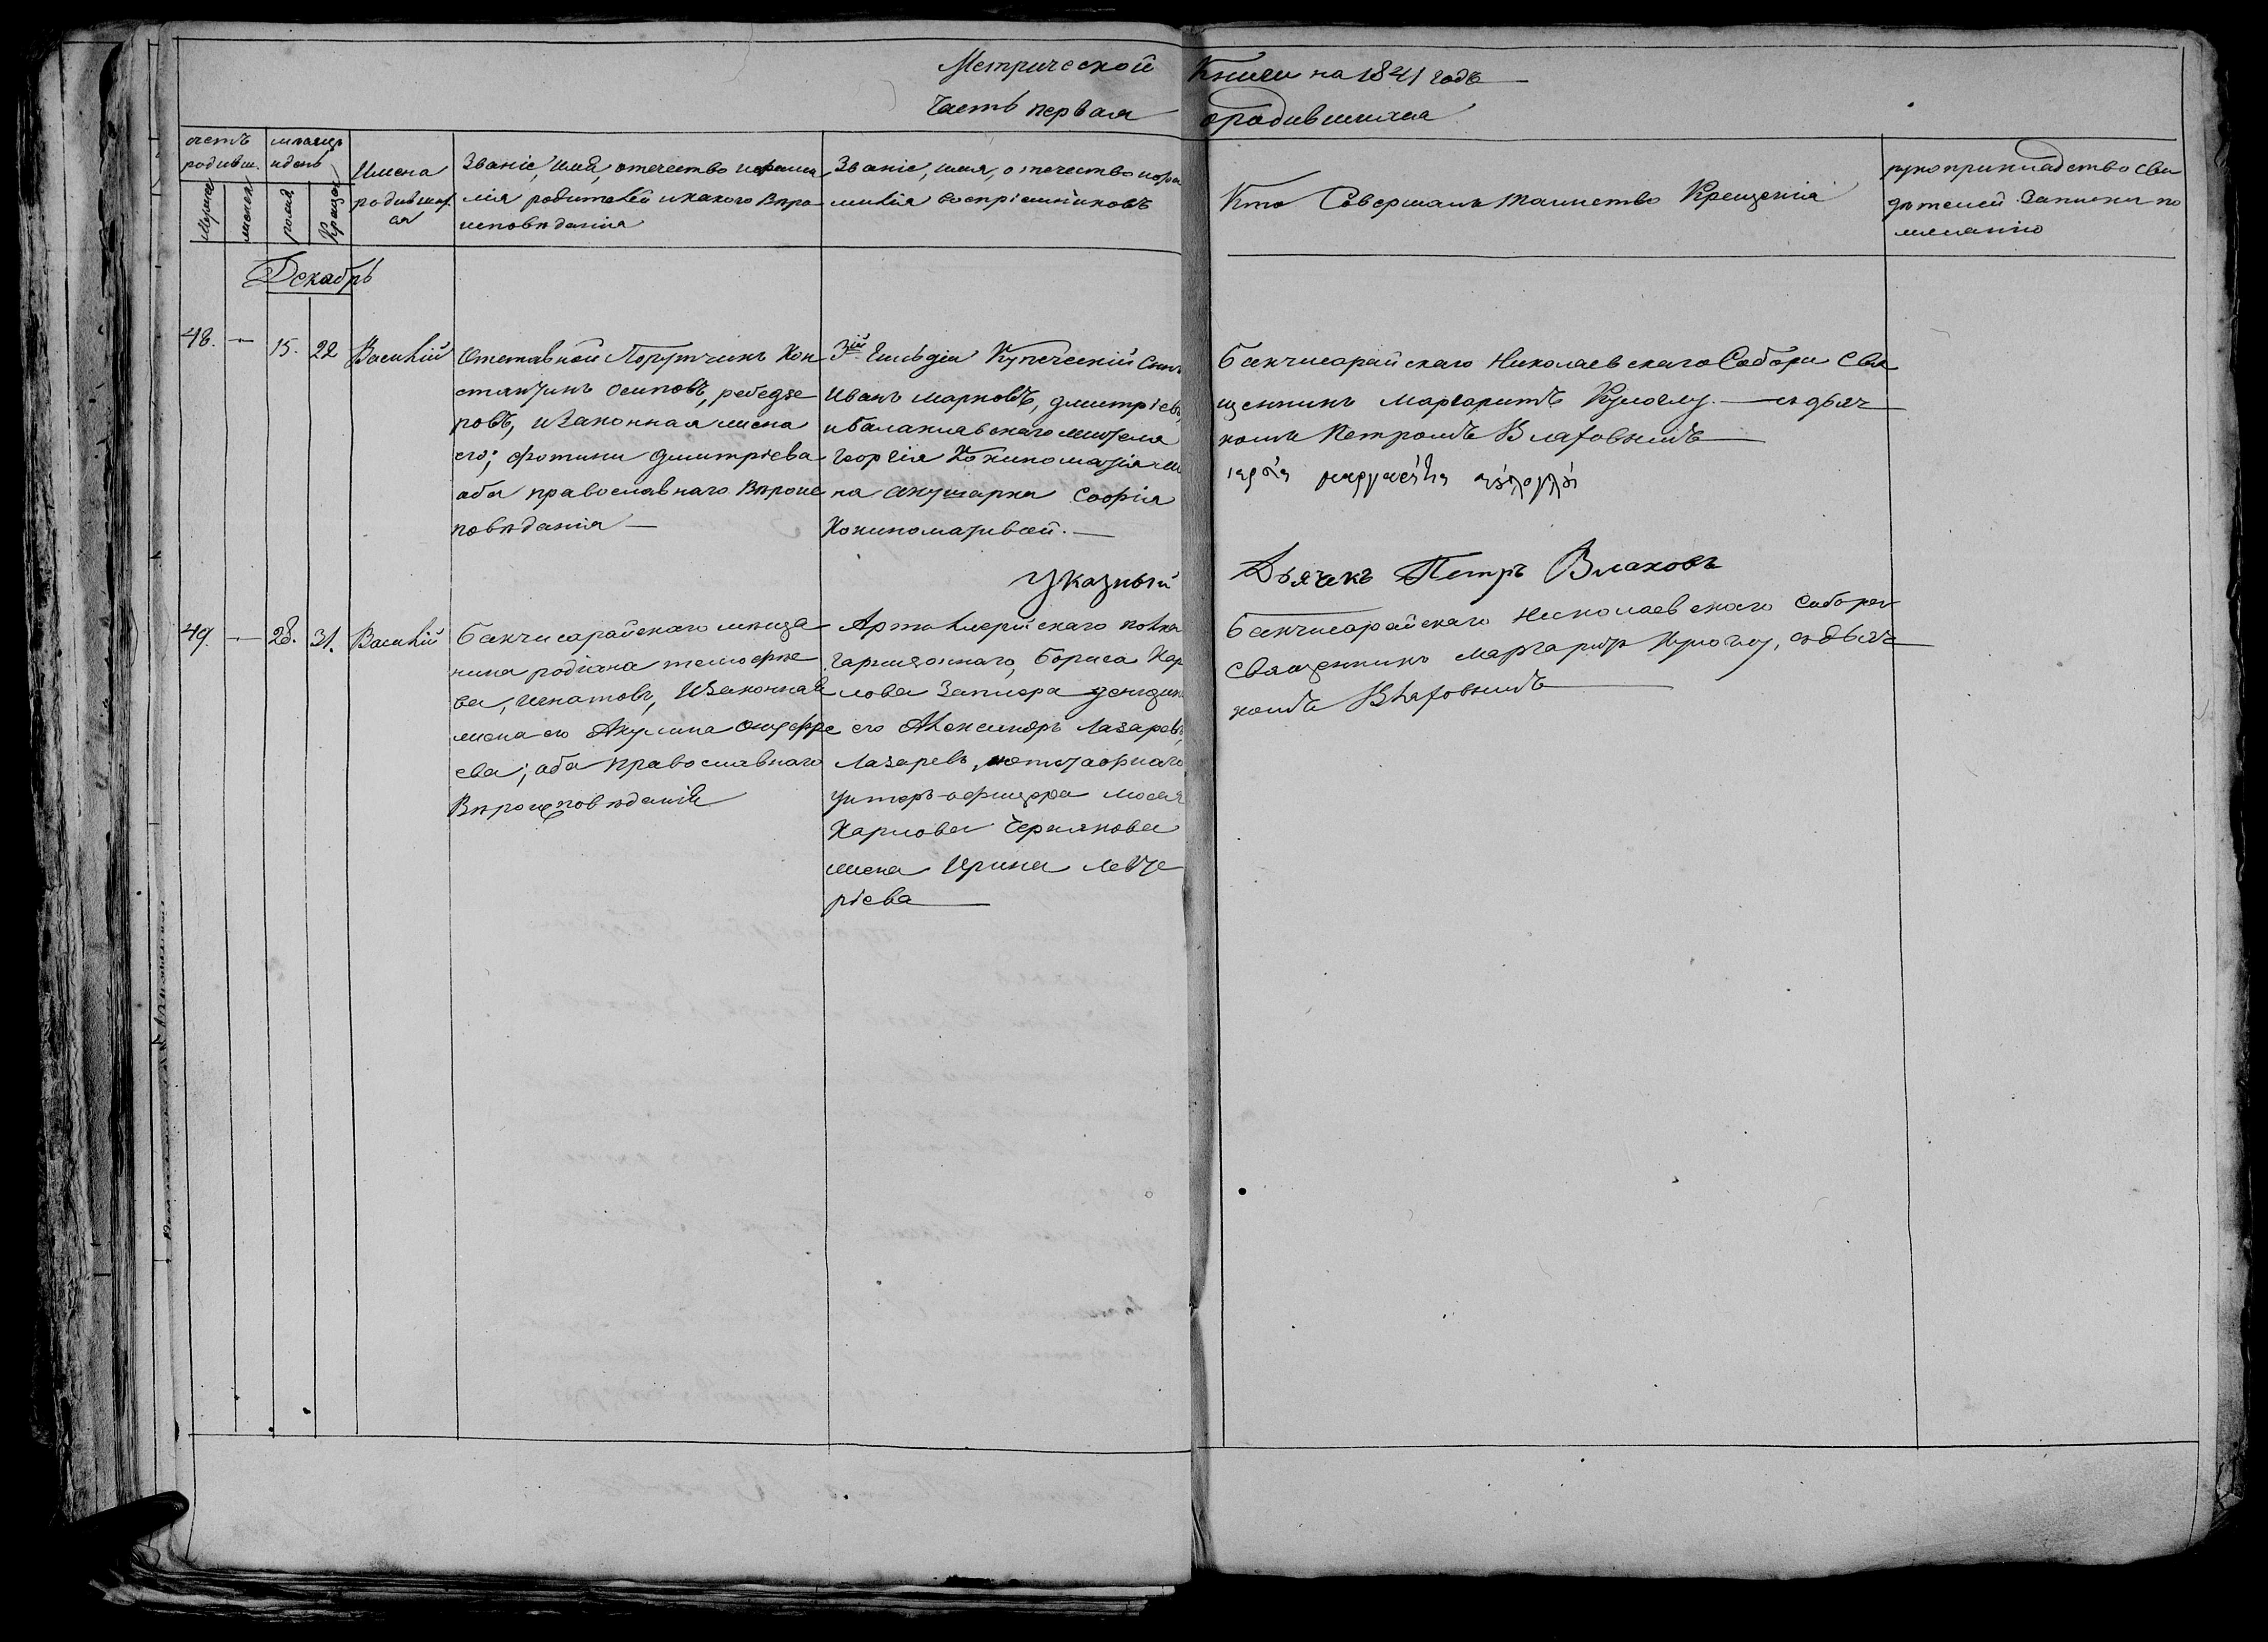 Метрической Книги на 1841 годъ
Часть первая о родившихся
счетъ родивш.
мѣсяцъ и день
Мужеска
женска
рожд
Крещен
Имена родившихся
Званіе, имя, отечество и фами
лія родителей и какого вѣро
исповѣданія
Званіе, имя, отечество и фа
милія воспріемниковъ
Кто Совершалъ таинство Крещенія
рукоприкладство сви
дѣтелей записки по
желанію
Декабрь
48. — 15. 22 Василій
Отставной Порутчикъ Кон
стантинъ Осиповъ,
и Законная жена
его; Фотини Дмитріева
оба православнаго вѣроис
повѣданія —
3й Гильдіи Купеческій Сынъ
Иванъ Марковъ, Дмитріевъ
и Балаклавскаго жителя
Георгія же
на акушерка Софія
Бакчисарайскаго Николаевскаго Собора Свя
щенникъ Маргаритъ — съ дьяч
комъ Петромъ Влаховымъ —
Указный Дьячекъ Петръ Влаховъ
49. — 28. 31. Василій
Бакчисарайскаго мѣща
нина родіона тимофѣе
ва, Игнатовъ, и Законная
жена его Акулина Онуфрі
ева; оба православнаго
Вѣроисповѣданія
Артиллерійскаго полка
гарнизоннаго, Бориса Кар
лова денщикъ
его Александръ Лазаревъ,
Лазаревъ,
унтеръ-офицера
Карлова Чернякова
жена Ирина
ріева —
Бакчисарайскаго Николаевскаго Собора
Священникъ Маргаритъ съ дьяч
комъ Влаховымъ —